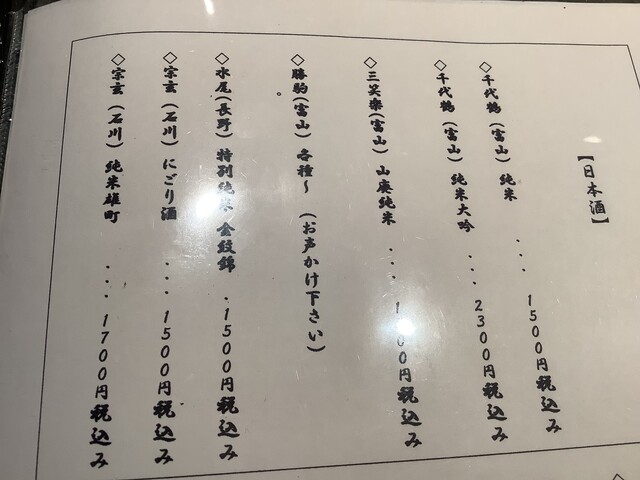 【日本酒】
◇千代鶴(富山) 純米 ... 1500円税込み
◇千代鶴(富山) 純米大吟 ... 2300円税込み
◇三笑楽(富山) 山廃純米 ... 円税込み
◇勝駒(富山) 各種～ (お声かけ下さい)
◇水尾(長野) 特別純米 金紋錦 .1500円税込み
◇宗玄(石川) にごり酒 ... 1500円税込み
◇宗玄(石川) 純米雄町 ... 1700円税込み